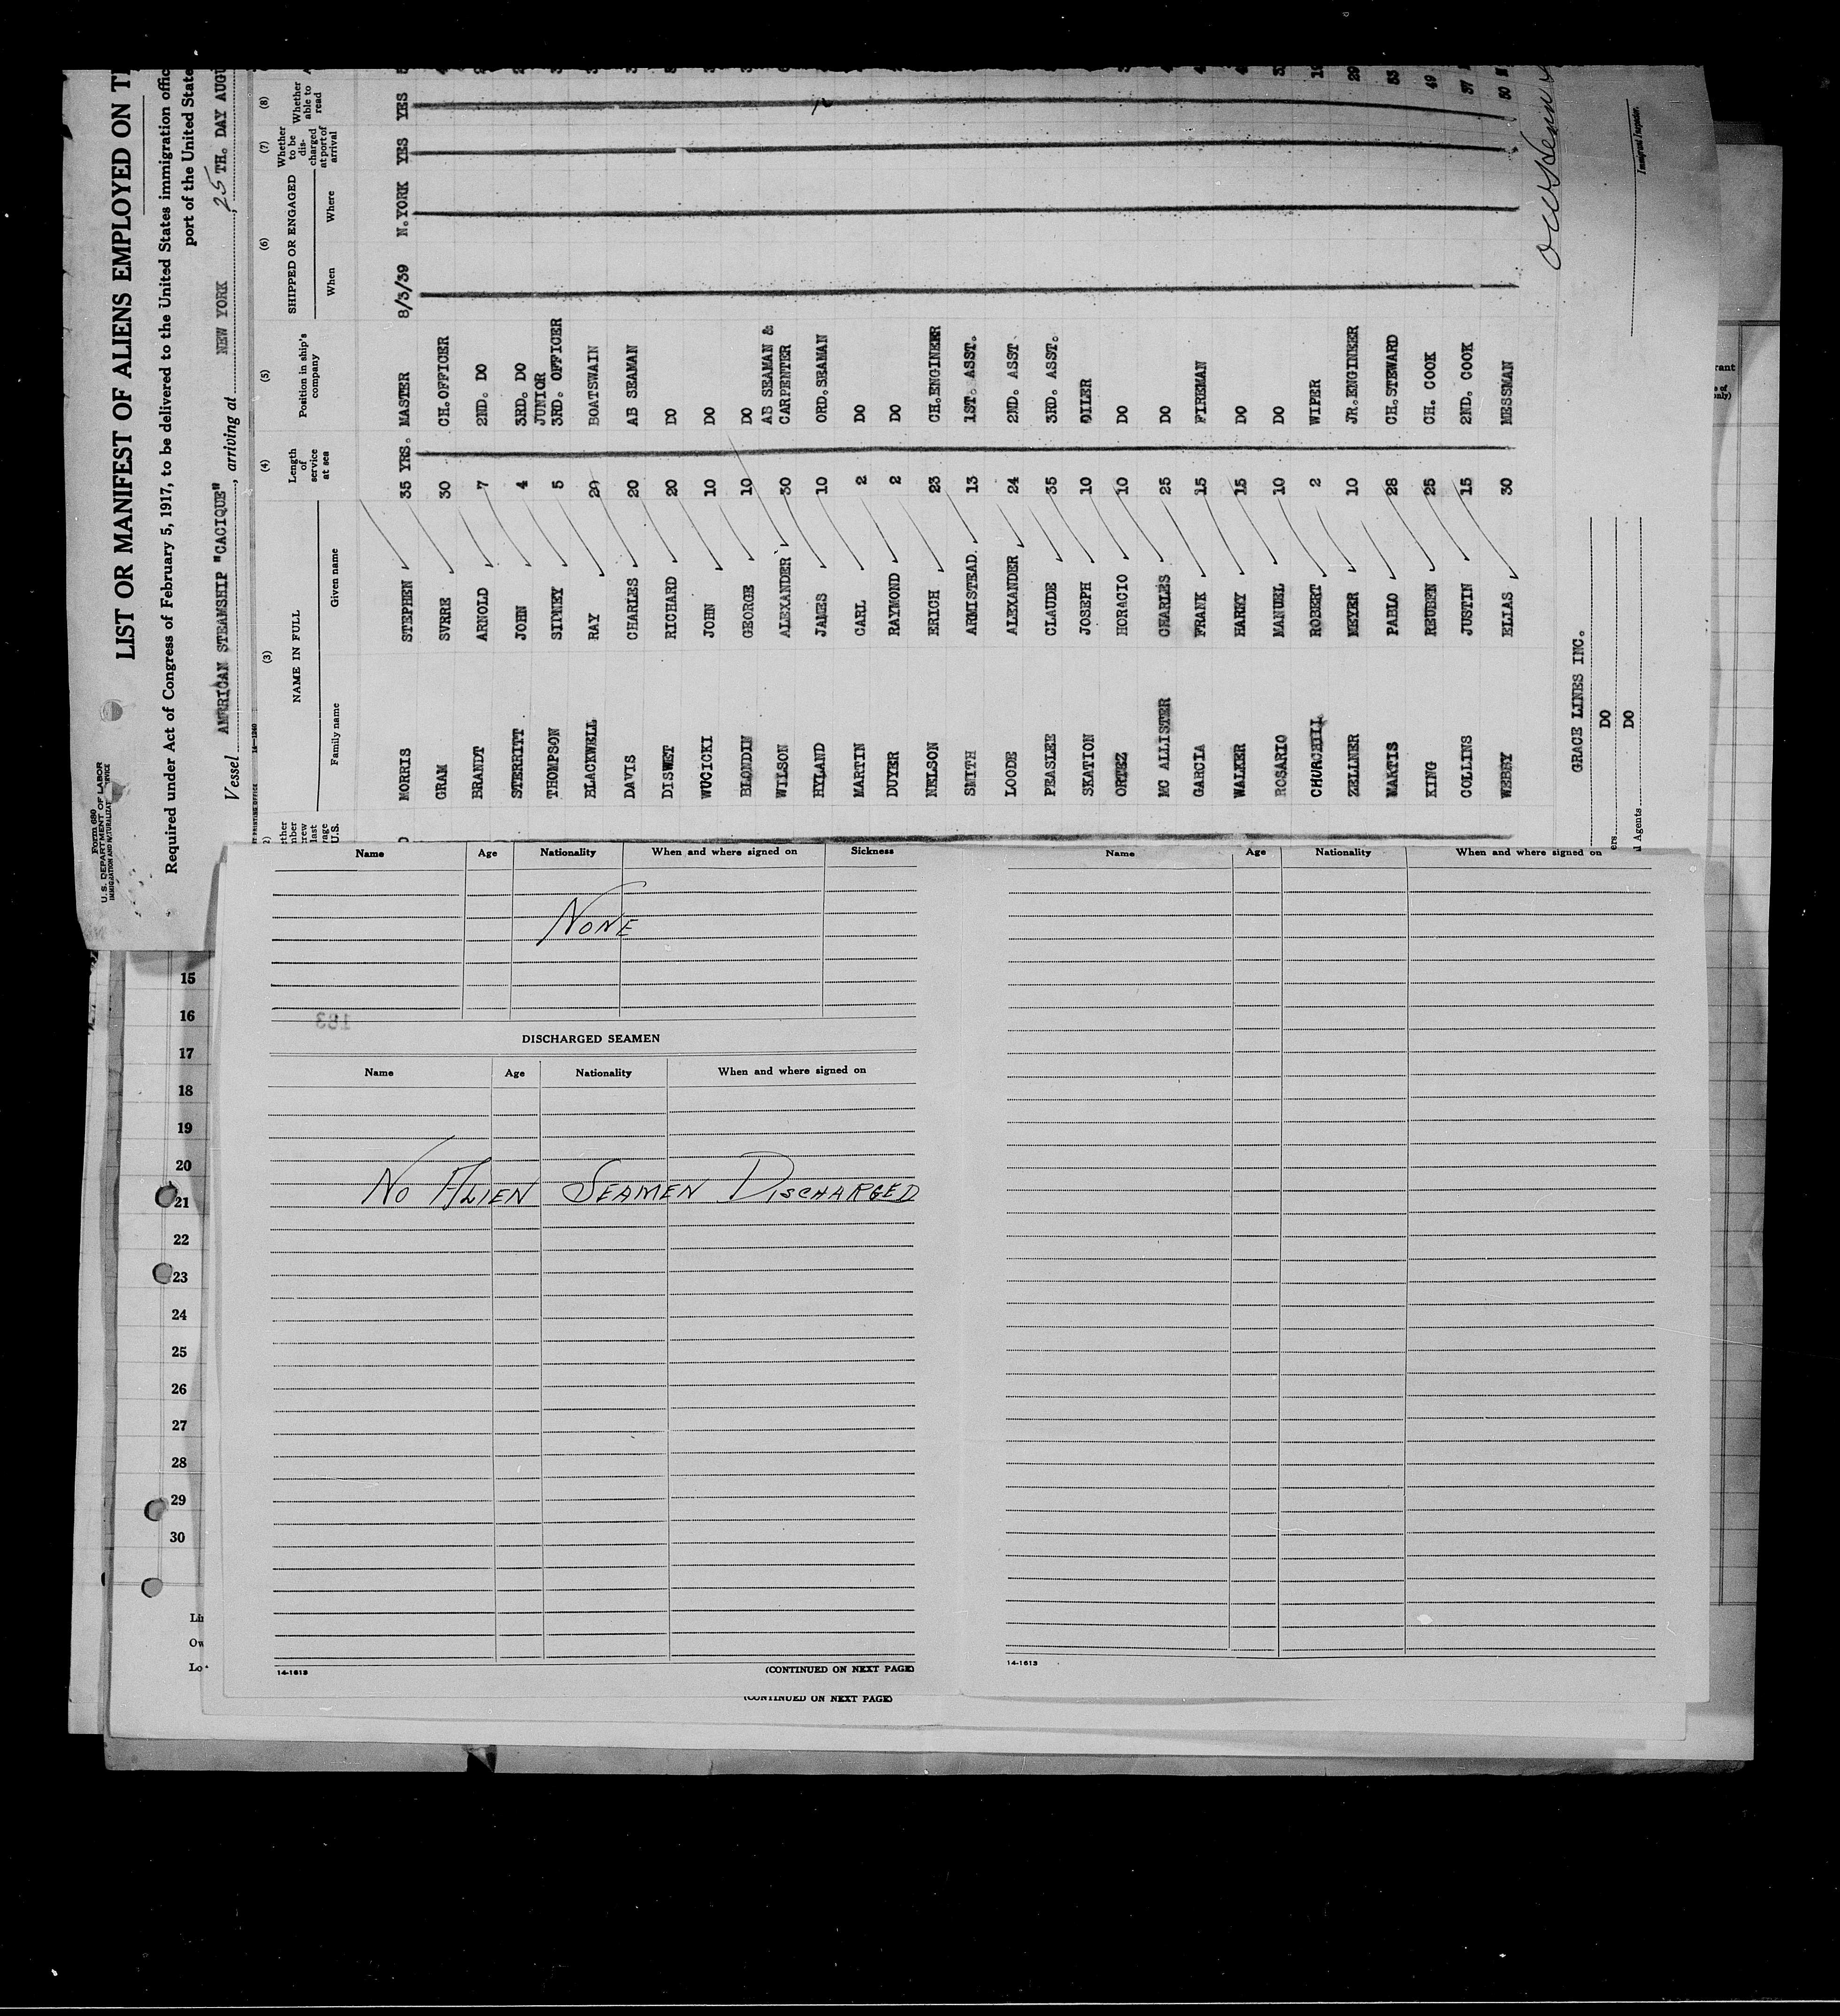 Form 680
U. S. DEPARTMENT OF LABOR
LIST OR MANIFEST OF ALIENS EMPLOYED ON
Required under Act of Congress of February 5, 1917, to be delivered to the United States immigration
port of the United
Vessel AMERICAN STEAMSHIP "CACIQUE", arriving at NEW YORK, 25 TH. DAY
(3) (4) (5) (6) (7) (8)
NAME IN FULL
Family name Given name
Length of service at sea
Position in ship's company
SHIPPED OR ENGAGED
When Where
Whether to be discharged at port of arrival
Whether able to read
MORRIS STEPHEN 35 YRS. MASTER 8/3/39 N.YORK YES YES
GRAM SVRRE 30 CH.OFFICER
BRANDT ARNOLD 7 2ND. DO
STERRITT JOHN 4 3RD. DO
THOMPSON SIDNEY 5 JUNIOR 3RD. OFFICER
BLACKWELL RAY 20 BOATSWAIN
DAVIS CHARLES 20 AB SEAMAN
DISWET RICHARD 20 DO
WUCICKI JOHN 10 DO
BLONDIN GEORGE 10 DO
WILSON ALEXANDER 30 AB SEAMAN & CARPENTER
HYLAND JAMES 10 ORD.SEAMAN
MARTIN CARL 2 DO
DUYER RAYMOND 2 DO
NELSON ERICH 23 CH.ENGINEER
SMITH ARMISTEAD. 13 1ST. ASST.
LOODE ALEXANDER 24 2ND. ASST
PEASLEE CLAUDE 35 3RD. ASST.
SKATION JOSEPH 10 OILER
ORTEZ HORACIO 10 DO
MC ALLISTER CHARLES 25 DO
GARCIA FRANK 15 FIREMAN
WALKER HARRY 15 DO
ROSARIO MANUEL 10 DO
CHURCHILL ROBERT 2 WIPER
ZELLNER MEYER 10 JR.ENGINEER
MARTIS PABLO 28 CH.STEWARD
KING REUBEN 25 CH. COOK
COLLINS JUSTIN 15 2ND. COOK
WEBBY ELIAS 30 MESSMAN
GRACE LINES INC.
DO
DO
Agents
Immigrant Inspector.
Name Age Nationality When and where signed on Sickness
NONE
183
DISCHARGED SEAMEN
Name Age Nationality When and where signed on
NO ALIEN SEAMEN DISCHARGED
14-1613 (CONTINUED ON NEXT PAGE)
(CONTINUED ON NEXT PAGE)
Name Age Nationality When and where signed on
14-1613
15
16
17
18
19
20
21
22
23
24
25
26
27
28
29
30